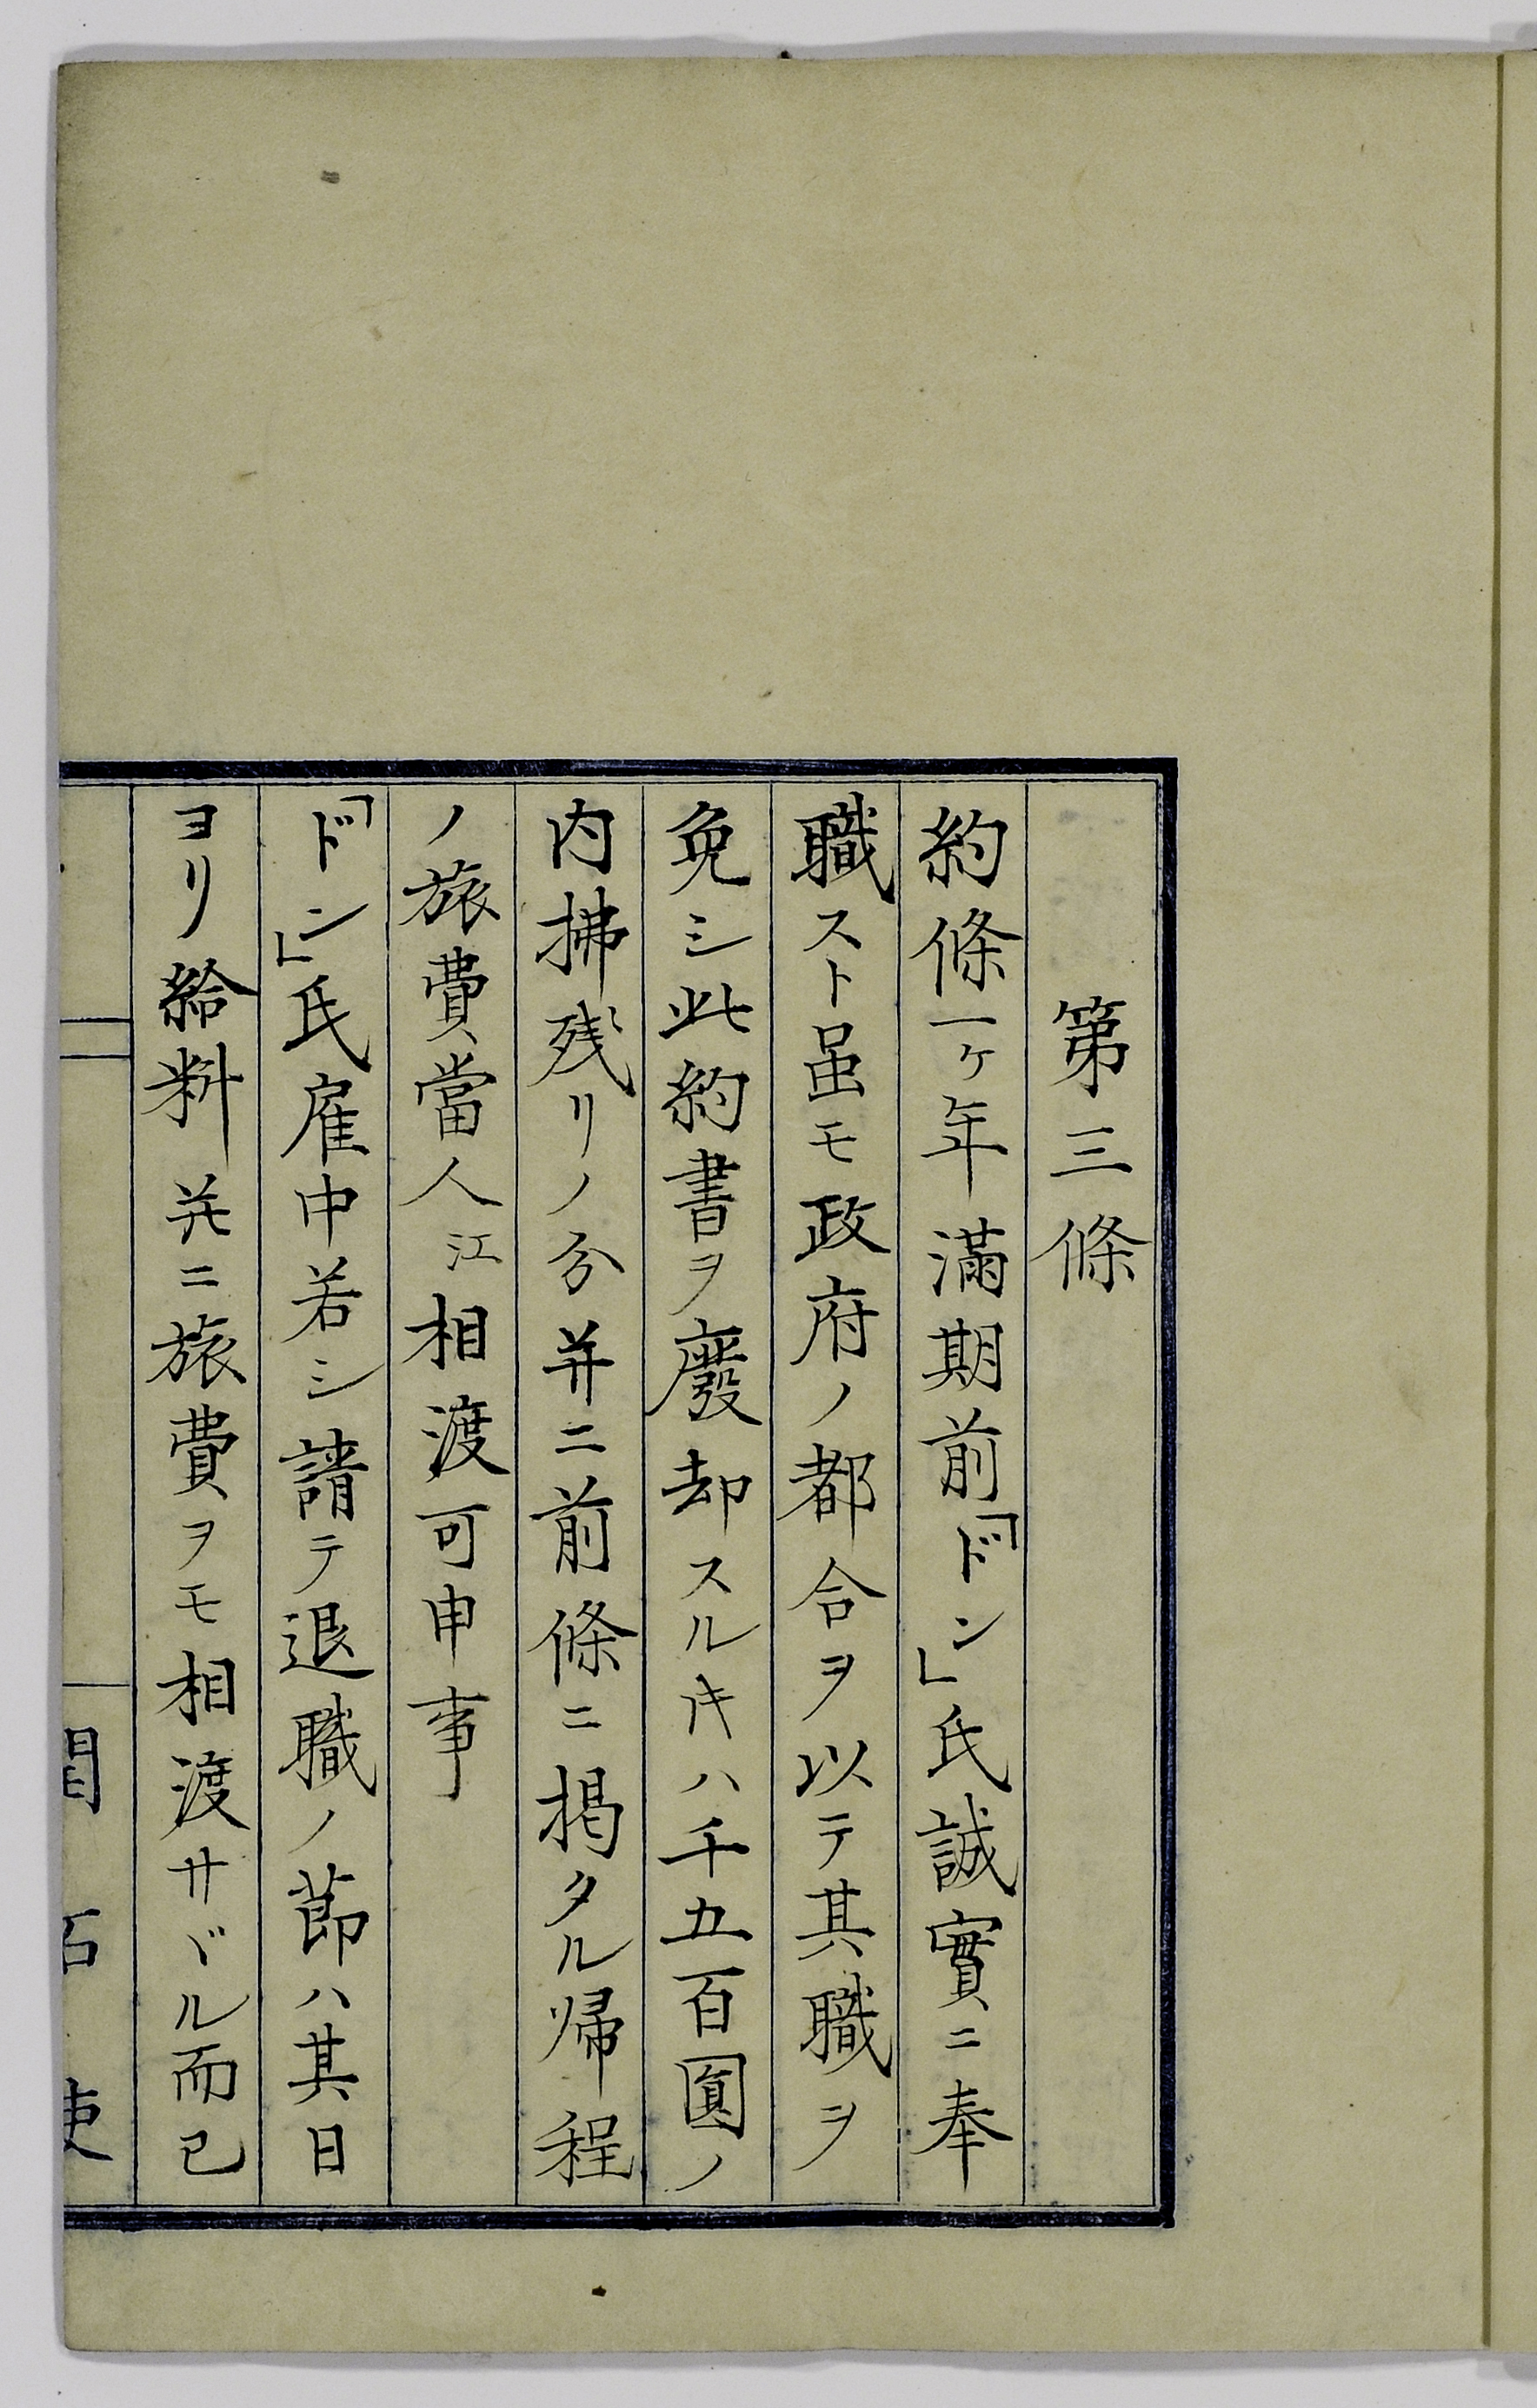 第三條
約條一ケ年滿期前「ドン」氏誠實ニ奉
職スト虽モ政府ノ都合ヲ以テ其職ヲ
免シ此約書ヲ廢却スル𪜈ハ千五百圓ノ
内拂残リノ分并ニ前條ニ掲タル帰程
ノ旅費當人江相渡可申事
「ドン」氏雇中若シ請テ退職ノ節ハ其日
ヨリ給料并ニ旅費ヲモ相渡サヾル而已
開拓使